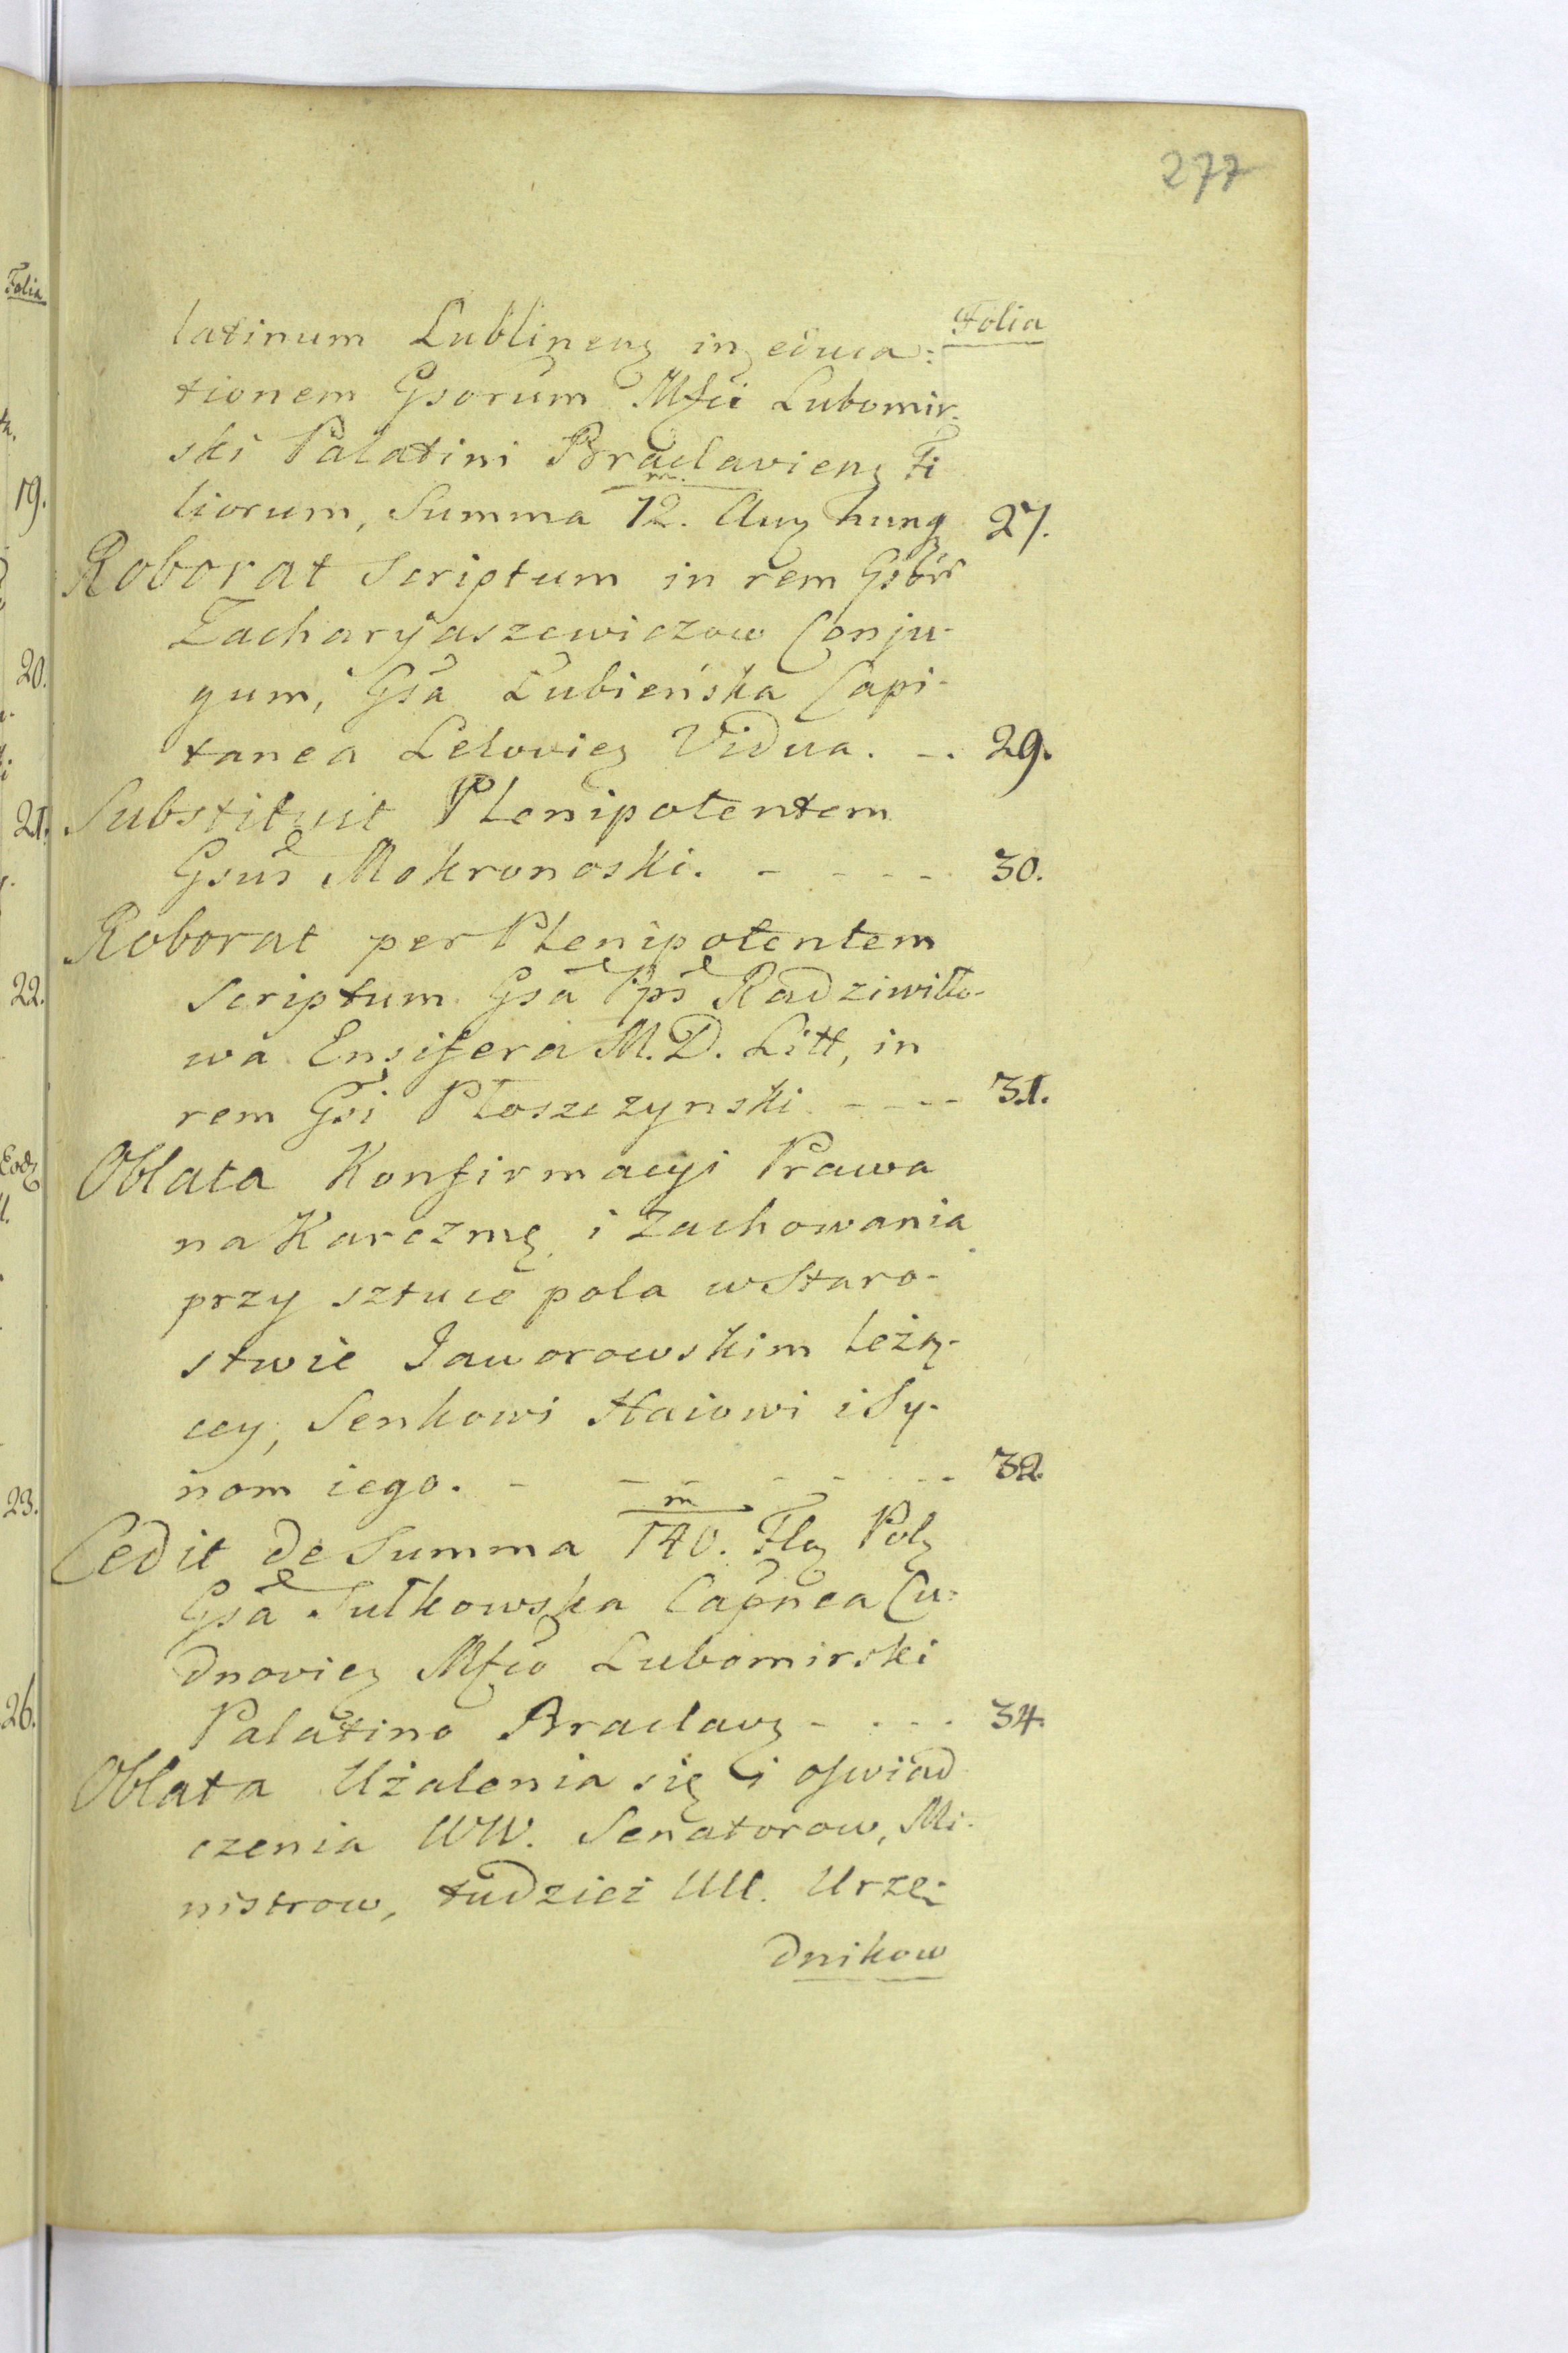 277
Folia
latinum Lublinen in educa:
tionem Gsorum Mfci Lubomir-
ski Palatini Braclavien Fi
liorum, Summa 12. Aur hung 27.
m.
Roborat Scriptum in rem Gsor
Zacharyaszewiczow Conju-
gum, Gsa Łubieńska Capi-
tanea Lelovien Vidua. - . 29.
Substituit Plenipotentem
Gsus Mokronoski. - - - - 30.
Roborat per Plenipotentem
Scriptum Gsa Pps Radziwiłło-
wa Ensifera M. D. Litt, in
rem Gsi Płoszczynski - - - - 31.
Oblata Konfirmacyi Prawa
na Karczmę i Zachowania
przy sztuce pola w Staro-
stwie Jaworowskim leżą-
cey, Senkowi Haiowi i Sy-
nom iego. - - - - - - 32.
m
Cedit de Summa 140. Flo Pol
Gsa Sułkowska Capnea Cu:
dnovien Mfco Lubomirski
Palatino Braclav - . - . 34.
Oblata Użalenia się i oswiad
czenia WW. Senatorow, Mi-
nistrow, tudzież UU. Urzę-
dnikow
Folia
19.
20.
21.
22.
Eod
23.
26.